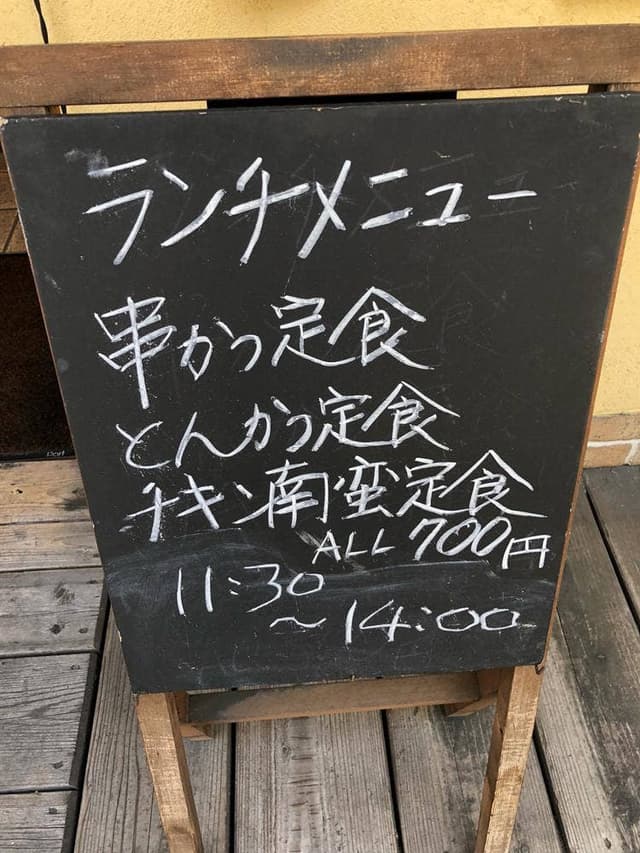 ランチメニュー
串かつ定食
とんかつ定食
チキン南蛮定食
ALL 700円
11:30
～14:00